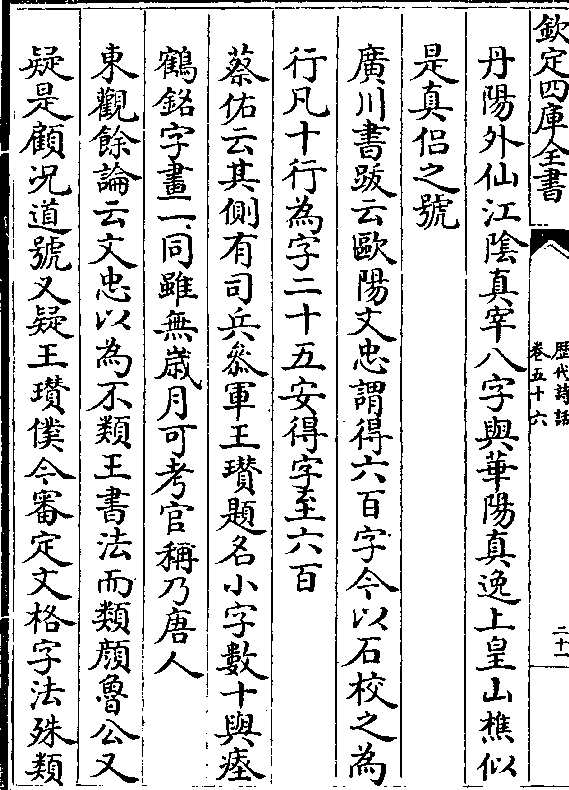 欽定四庫全書
歴代詩話
卷五十六
二十一
丹陽外仙江陰真宰八字與華陽真逸上皇山樵似
是真侣之號
廣川書跋云歐陽文忠謂得六百字今以石校之為
行凡十行為字二十五安得字至六百
蔡佑云其側有司兵叅軍王瓚題名小字數十與瘞
鶴銘字畫一同雖無歲月可考官稱乃唐人
東觀餘論云文忠以為不類王書法而類顔魯公又
疑是顧况道號又疑王瓚僕今審定文格字法殊類